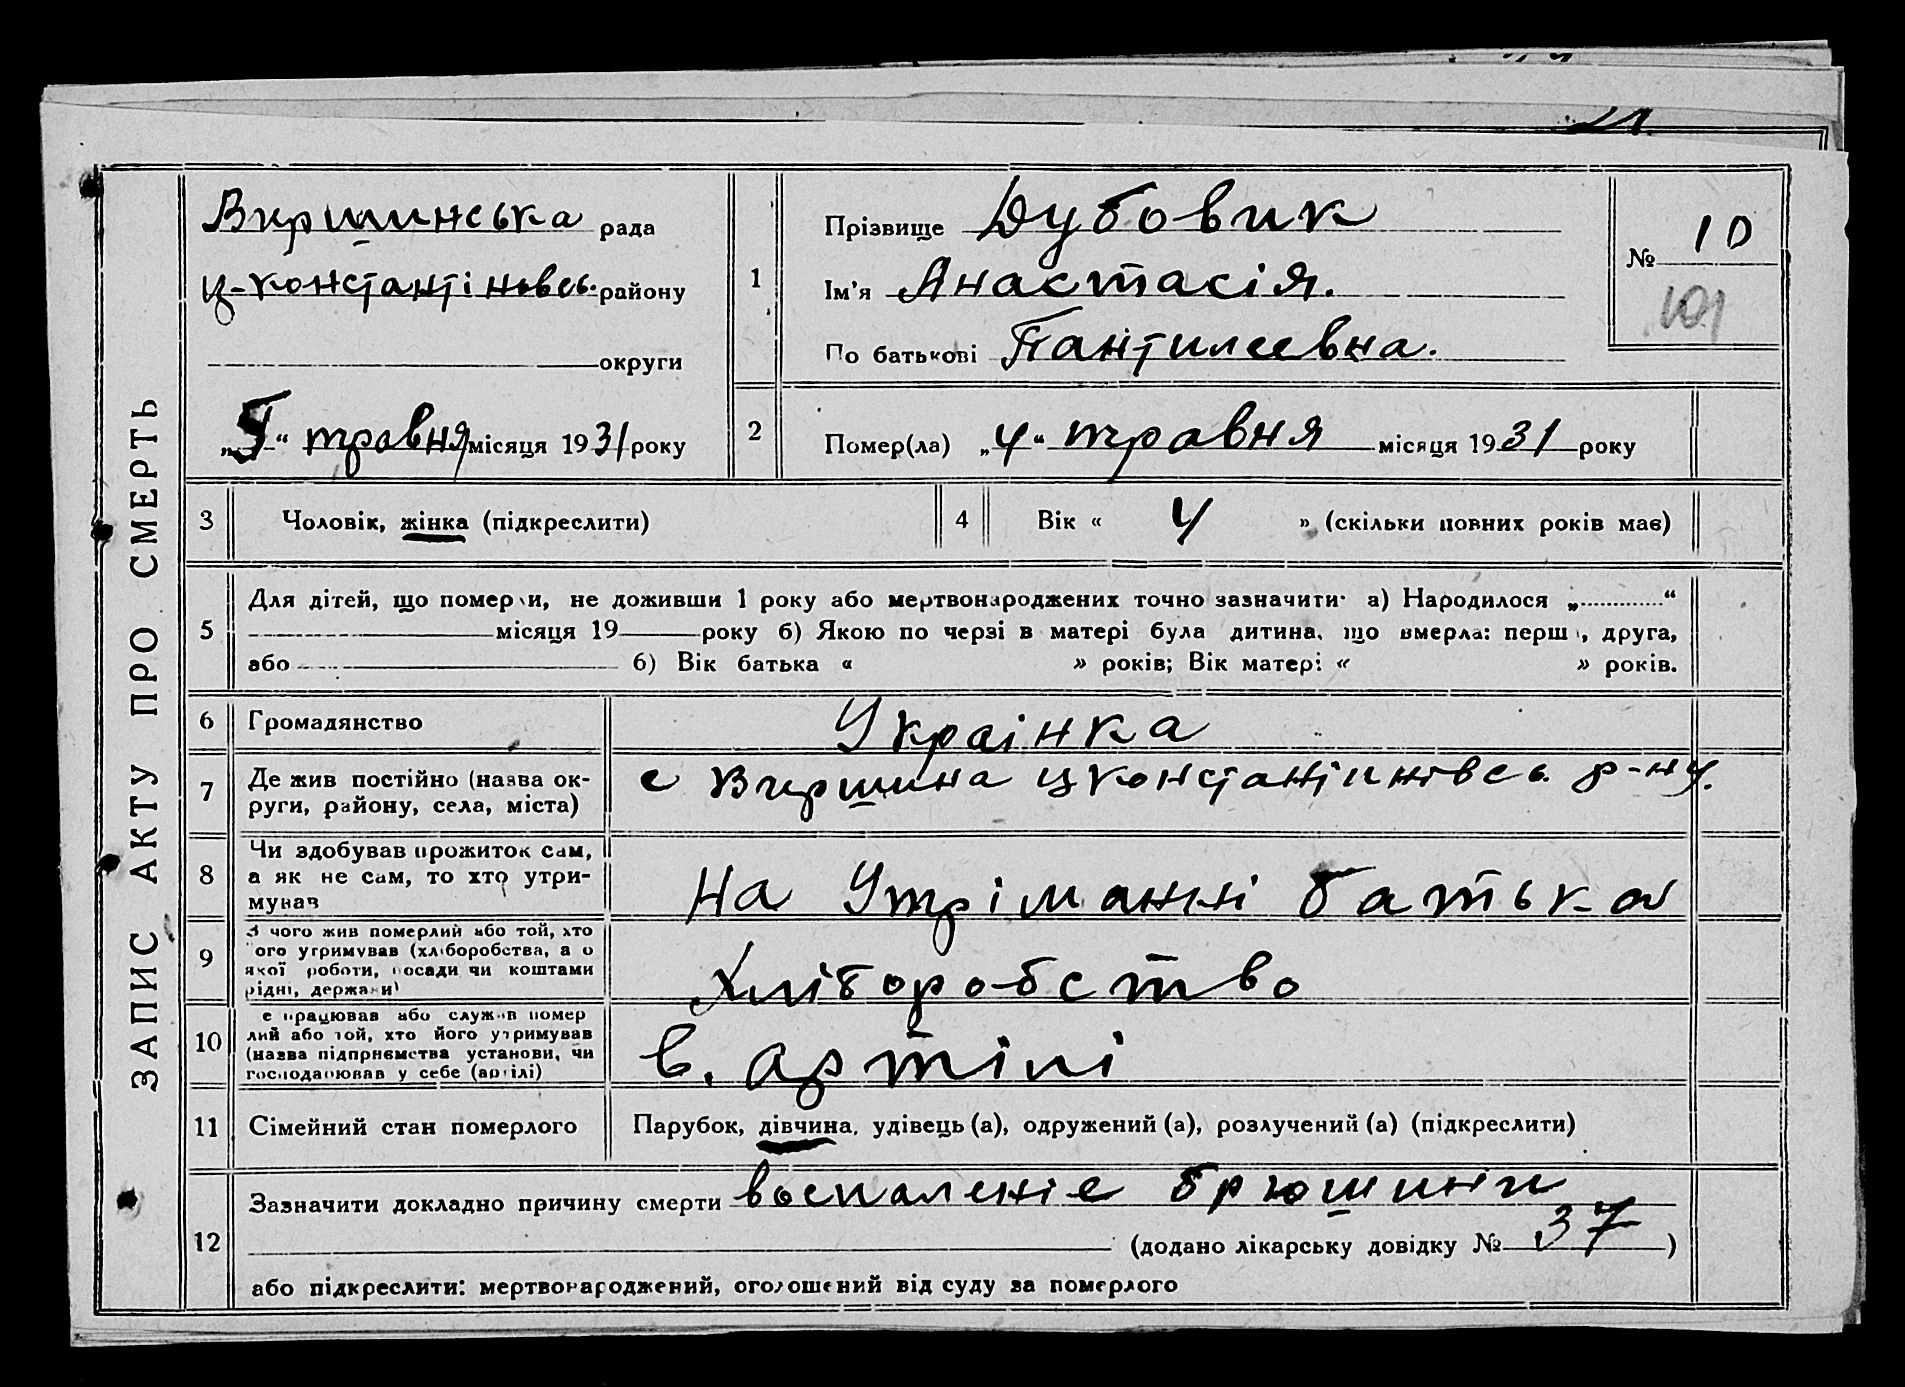 ЗАПИС АКТУ ПРО СМЕРТЬ
Виршинська рада
ц-константіновсь. району
округи
„5“ травня місяця 1931 року
1
Прізвище Дубовик
Ім'я Анастасія.
По батькові Пантилеевна.
№ 10
101
2
Помер(ла) „4“ травня місяця 1931 року
3
Чоловік, жінка (підкреслити)
4
Вік « 4 » (скільки повних років має)
5
Для дітей, що померли, не доживши 1 року або мертвонароджених точно зазначити: а) Народилося „ “
місяця 19 року б) Якою по черзі в матері була дитина, що вмерла: перша, друга,
або б) Вік батька « » років; Вік матері « » років.
6
Громадянство
Украінка
7
Де жив постійно (назва ок-
руги, району, села, міста)
с Виршина цконстантіинівсь. р-ну.
8
Чи здобував прожиток сам,
а як не сам, то хто утри-
мував
На Утріманні батька
9
З чого жив померлий або той, хто
його утримував (хліборобства, а о
якої роботи, посади чи коштами
рідні, держави)
Хліборобство
10
Де працював або служив помер
лий або той, хто його утримував
(назва підприємства установи, чи
господарював у себе (артілі)
в. артілі
11
Сімейний стан померлого
Парубок, дівчина, удівець (а), одружений (а), розлучений (а) (підкреслити)
12
Зазначити докладно причину смерти воспаленіе брюшини
(додано лікарську довідку № 37)
або підкреслити: мертвонароджений, оголошений від суду за померлого